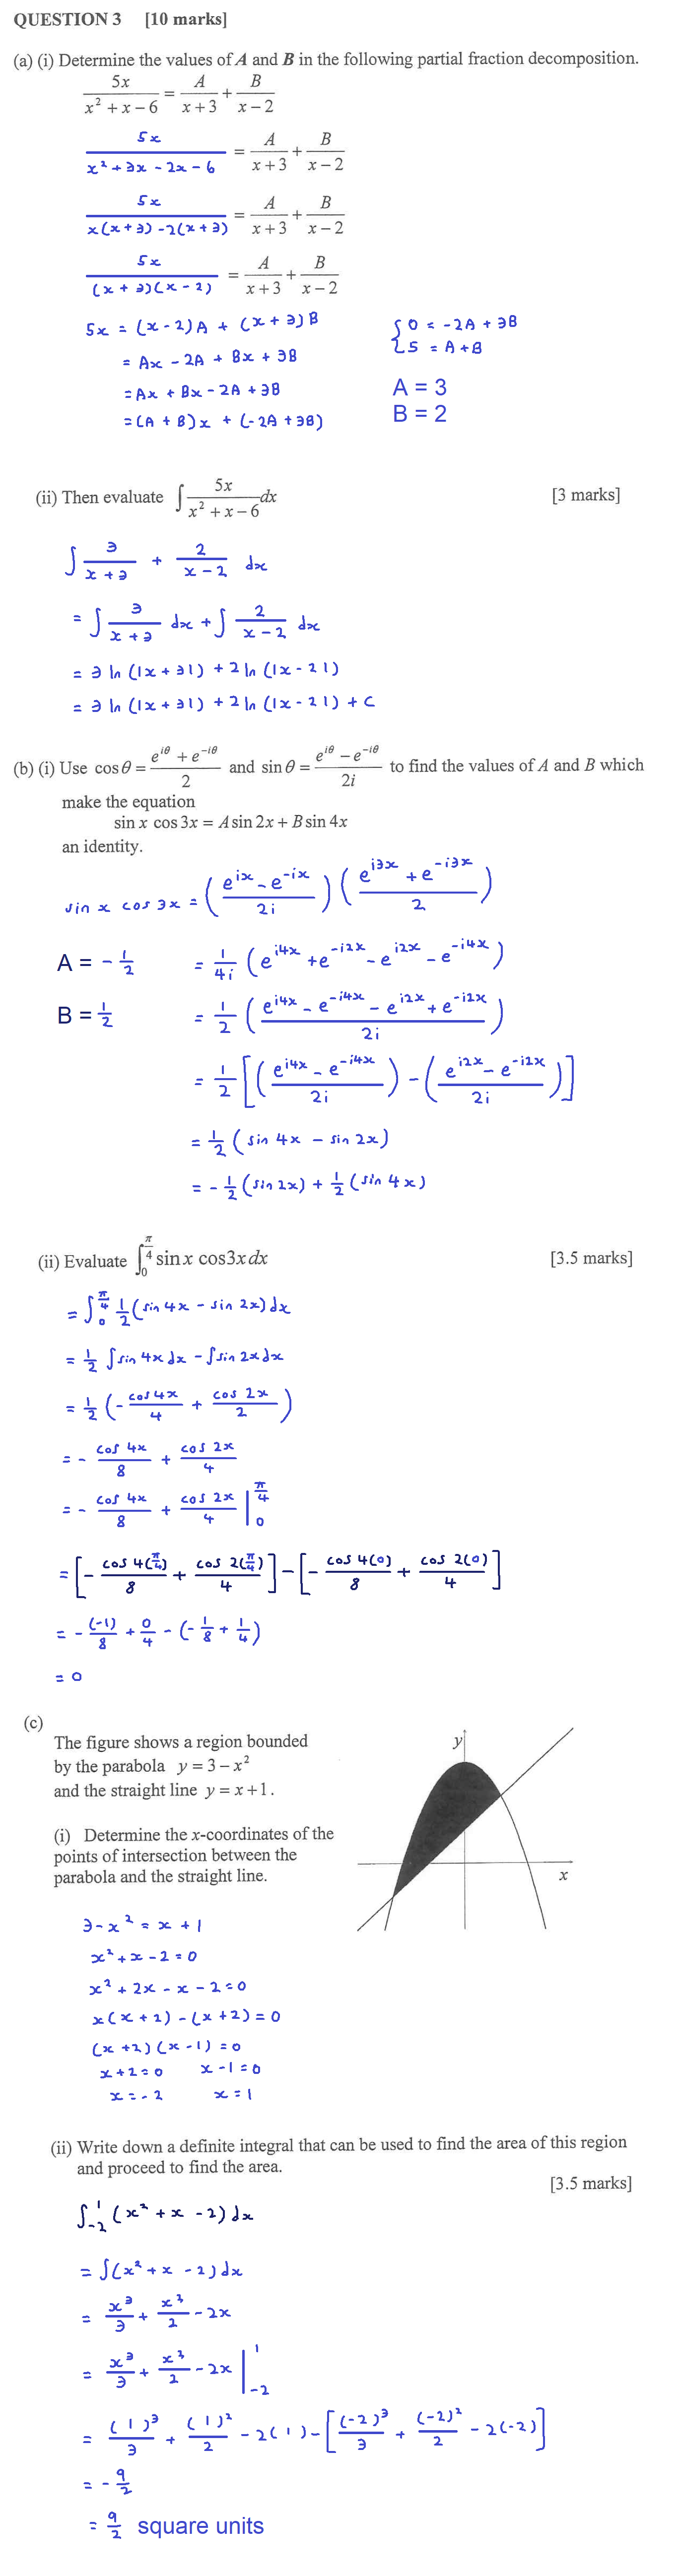 QUESTION 3 [10 marks]
(a) (i) Determine the values of A and B in the following partial fraction decomposition.
5x/(x² + x − 6) = A/(x + 3) + B/(x − 2)
5x/(x² + 3x − 2x − 6) = A/(x + 3) + B/(x − 2)
5x/(x(x + 3) − 2(x + 3)) = A/(x + 3) + B/(x − 2)
5x/((x + 3)(x − 2)) = A/(x + 3) + B/(x − 2)
5x = (x − 2)A + (x + 3)B
= Ax − 2A + Bx + 3B
= Ax + Bx − 2A + 3B
= (A + B)x + (−2A + 3B)
{ 0 = −2A + 3B
5 = A + B
A = 3
B = 2
(ii) Then evaluate ∫ 5x/(x² + x − 6) dx [3 marks]
∫ 3/(x + 3) + 2/(x − 2) dx
= ∫ 3/(x + 3) dx + ∫ 2/(x − 2) dx
= 3 ln (|x + 3|) + 2 ln (|x − 2|)
= 3 ln (|x + 3|) + 2 ln (|x − 2|) + C
(b) (i) Use cos θ = (e^{iθ} + e^{−iθ})/2 and sin θ = (e^{iθ} − e^{−iθ})/2i to find the values of A and B which
make the equation
sin x cos 3x = A sin 2x + B sin 4x
an identity.
sin x cos 3x = ((e^{ix} − e^{−ix})/2i) ((e^{i3x} + e^{−i3x})/2)
A = −1/2
= 1/4i (e^{i4x} + e^{−i2x} − e^{i2x} − e^{−i4x})
B = 1/2
= 1/2 ((e^{i4x} − e^{−i4x} − e^{i2x} + e^{−i2x})/2i)
= 1/2 [((e^{i4x} − e^{−i4x})/2i) − ((e^{i2x} − e^{−i2x})/2i)]
= 1/2 (sin 4x − sin 2x)
= −1/2 (sin 2x) + 1/2 (sin 4x)
(ii) Evaluate ∫_0^{π/4} sin x cos 3x dx [3.5 marks]
= ∫_0^{π/4} 1/2 (sin 4x − sin 2x) dx
= 1/2 ∫ sin 4x dx − ∫ sin 2x dx
= 1/2 (− cos 4x/4 + cos 2x/2)
= − cos 4x/8 + cos 2x/4
= − cos 4x/8 + cos 2x/4 |_0^{π/4}
= [− cos 4(π/4)/8 + cos 2(π/4)/4] − [− cos 4(0)/8 + cos 2(0)/4]
= − (−1)/8 + 0/4 − (−1/8 + 1/4)
= 0
(c)
The figure shows a region bounded
by the parabola y = 3 − x²
and the straight line y = x + 1.
y
x
(i) Determine the x-coordinates of the
points of intersection between the
parabola and the straight line.
3 − x² = x + 1
x² + x − 2 = 0
x² + 2x − x − 2 = 0
x(x + 2) − (x + 2) = 0
(x + 2)(x − 1) = 0
x + 2 = 0 x − 1 = 0
x = −2 x = 1
(ii) Write down a definite integral that can be used to find the area of this region
and proceed to find the area.
[3.5 marks]
∫_{−2}^{1} (x² + x − 2) dx
= ∫ (x² + x − 2) dx
= x³/3 + x²/2 − 2x
= x³/3 + x²/2 − 2x |_{−2}^{1}
= (1)³/3 + (1)²/2 − 2(1) − [(−2)³/3 + (−2)²/2 − 2(−2)]
= −9/2
= 9/2 square units